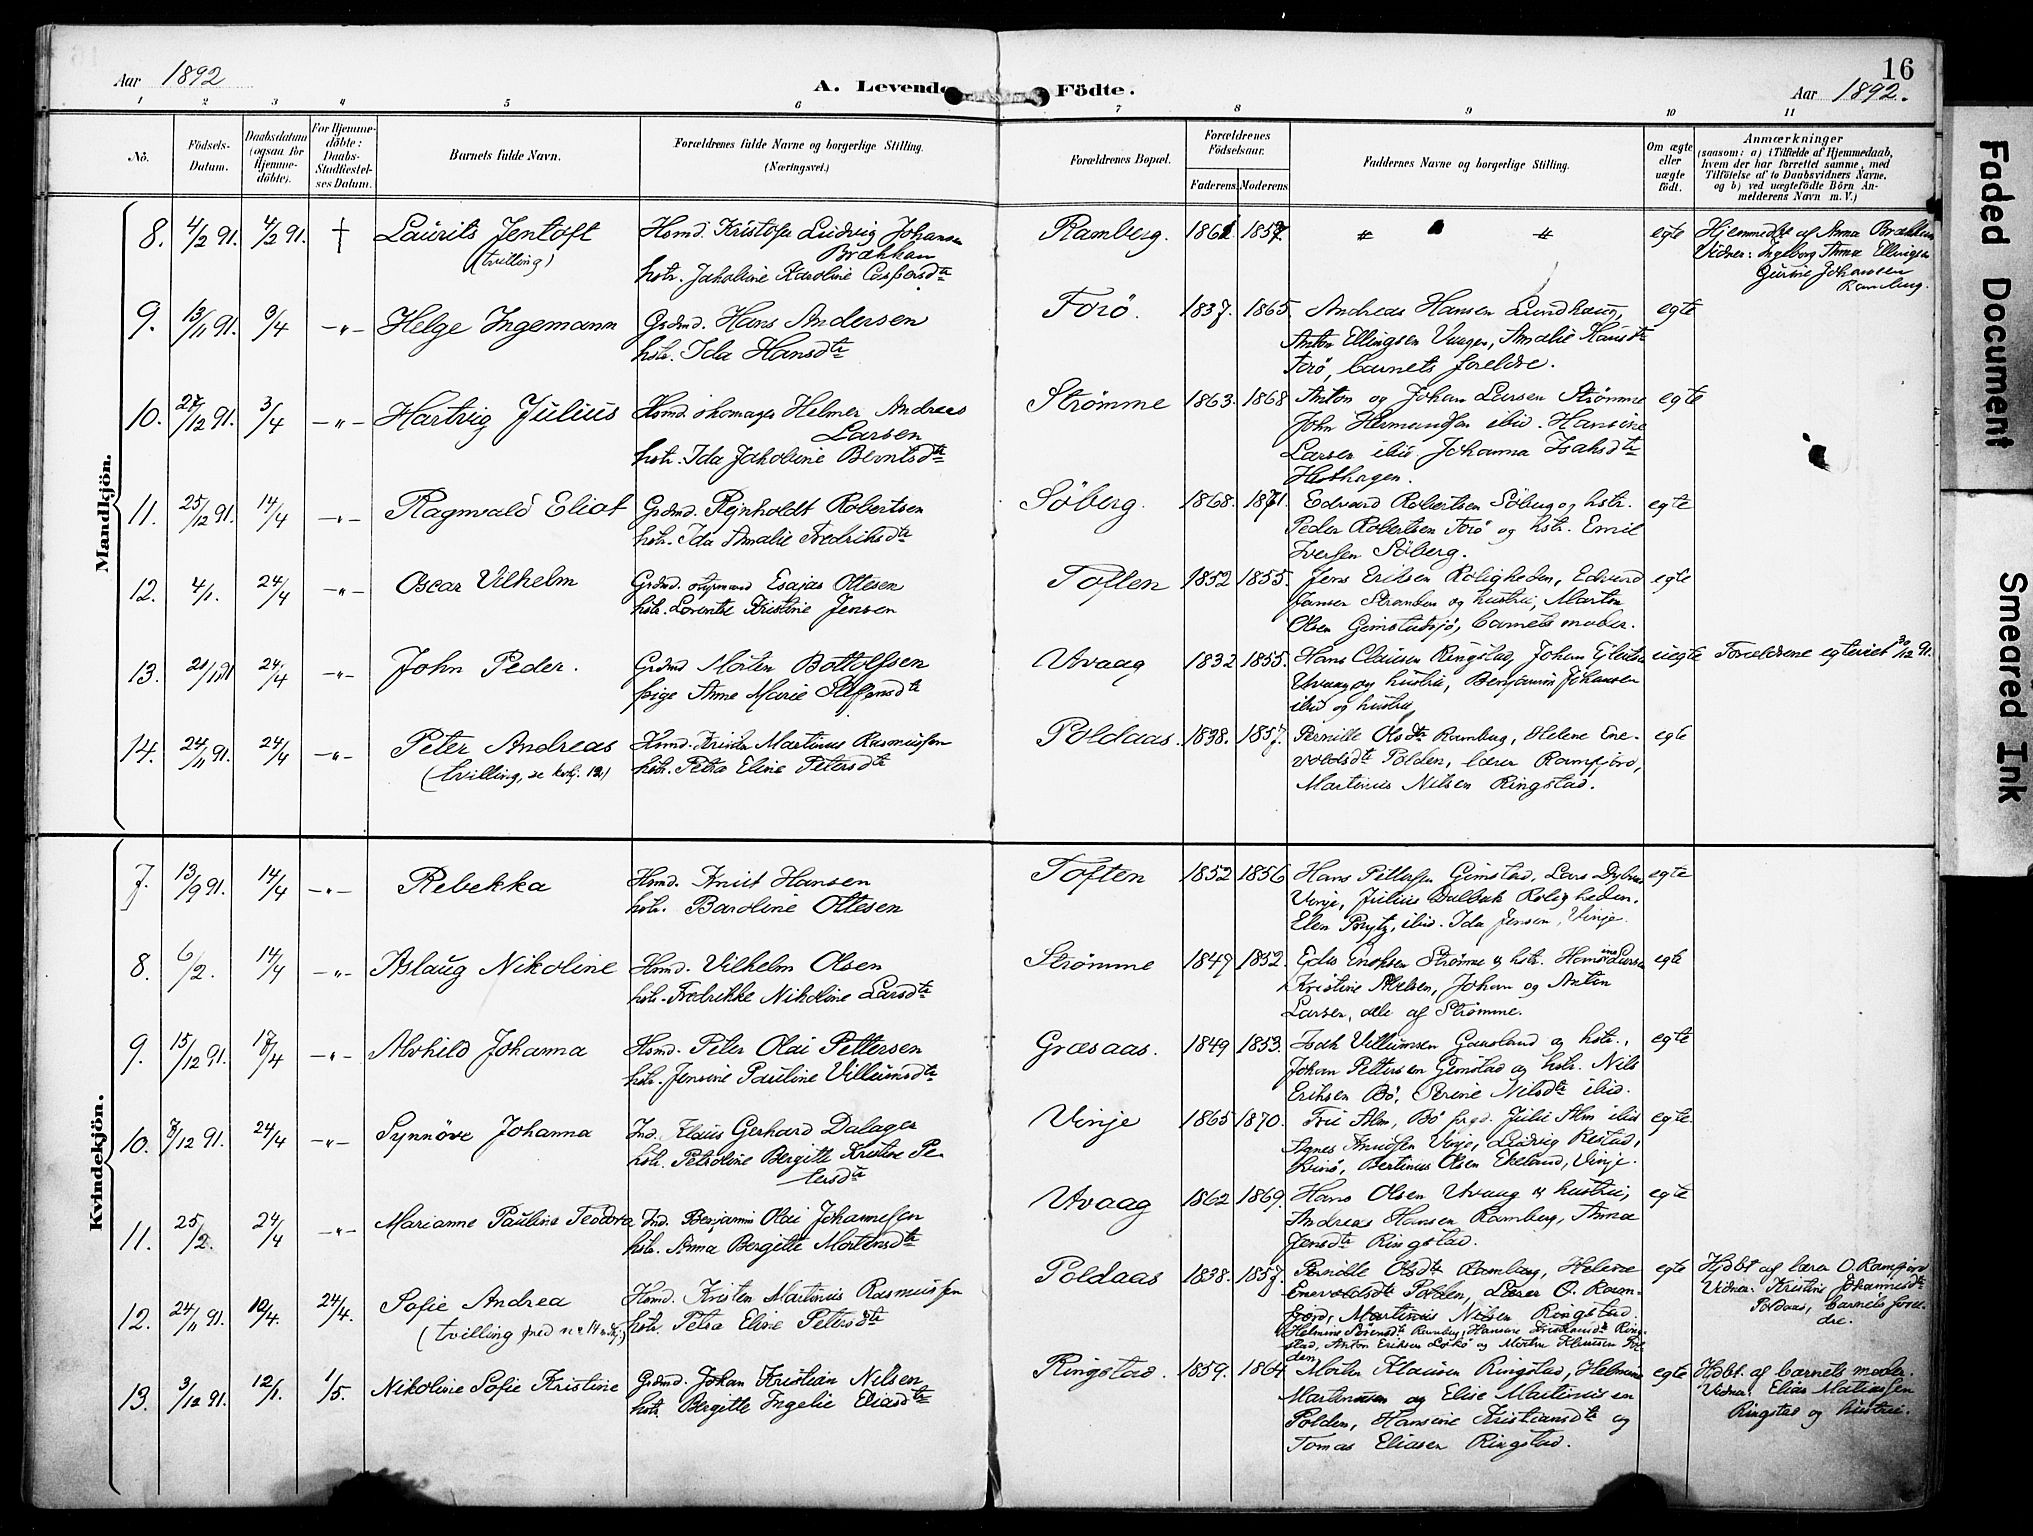 16
Aar 1892
A. Levende Födte.
Aar 1892.
1 2 3 4 5 6 7 8 9 10 11
No.
Födsels-
Datum.
Daabsdatum
(ogsaa for
Hjemme-
döbte).
For Hjemme-
döbte:
Daabs-
Stadfæstel-
ses Datum.
Barnets fulde Navn.
Forældrenes fulde Navne og borgerlige Stilling.
(Næringsvei.)
Forældrenes Bopæl.
Forældrenes
Födselsaar.
Faderens. Moderens.
Faddernes Navne og borgerlige Stilling.
Om ægte
eller
uægte
födt.
Anmærkninger
(saasom: a) i Tilfælde af Hjemmedaab,
hvem der har forrettet samme, med
Tilföielse af to Daabsvidners Navne,
og b) ved uægtefödte Börn An-
melderens Navn m. V.)
Mandkjön.
8. 4/2 91. 4/2 91. † Laurits Jentoft
(tvilling)
Hsmd. Kristofer Ludvig Johansen
Brækkan
hstr. Jakobine Karoline Caspersdtr
Ramberg. 1861 1857 " " egte
Hjemmedbt af Anna Brækkan
Vidner: Ingeborg Anna Ellingsen
Gurine Johansen
Ramberg.
9. 13/11 91. 3/4 -"- Helge Ingemann
Grdmd. Hans Andersen
hstr. Ida Hansdtr
Forö. 1837. 1865.
Andreas Hansen Lundhaug,
Anton Ellingsen Vinger, Amalie Hansdtr
Forö, barnets foreldre.
egte
10. 27/12 91. 3/4 -"- Hartvig Julius
Hsmd. skomager Helmer Andreas
Larsen
hstr. Ida Jakobine Berntsdtr
Strömme 1863. 1868
Anton og Johan Larsen Strömme
John Hermandsen ibid. Hansine
Larsen ibid. Johanna Isaksdtr
Hesthagen.
egte
11. 25/12 91. 14/4 -"- Ragnvald Eliot
Grdmd. Rejnholdt Robertsen
hstr. Ida Amalie Fredriksdtr
Söberg. 1868. 1871.
Edvard Robertsen Söberg og hstr.
Peder Robertsen Forö og hstr. Emil
Iversen Söberg.
egte
12. 4/1. 24/4 -"- Oscar Vilhelm
Grdmd. styrmand Esajas Ottesen
hstr. Lorentze Kristine Jensen
Toften 1852 1855.
Jens Eriksen Roligheden, Edvard
Jansen Stranden og hustru, Marton
Olsen Gimstadsjö, barnets moder.
egte
13. 24/4 -"- John Peder.
Grdmd Morten Bottolfsen
pige Anne Marie
Utvaag 1832 1855.
Hans Clausen Ringstad, Johan
Utvaag og hustru, Benjamin Johansen
ibid og hustru
uegte Forældrene egteviet 30/12 91.
14. 24/11 91. 24/4 -"- Peter Andreas
(tvilling, se kvkj. 12.)
Hsmd. Kristen Martinus Rasmussen
hstr. Petra Eline Petersdtr
Poldaas. 1838. 1857.
Pernille Olsdtr Ramberg, Helene Ene-
voldsdtr Polden, lærer Ramfjord,
Martinus Nilsen Ringstad.
egte
Kvindekjön.
7. 13/9 91. 14/4 -"- Rebekka
Hsmd. Knut Hansen
hstr. Baroline Ottesen
Toften 1852 1856
Hans Pettersen Gimstad, Lars
Vinje, Julius Dalbak Roligheden.
Elen Brytz, ibid. Ida Jensen, Vinje.
egte
8. 6/2. 14/4 -"- Aslaug Nikoline
Hsmd. Vilhelm Olsen
hstr. Fredrikke Nikoline Larsdtr
Strömme 1849 1852.
Enoksen Strömme og hstr. Hansine Larsen
Kristine Abelsen, Johan og Anton
Larsen, alle af Strömme.
egte
9. 15/12 91. 17/4 -"- Alvhild Johanna
Hsmd. Peter Olai Pettersen
hstr. Jensine Pauline Villumsdtr
Græsaas. 1849 1853.
Isak Villumsen Gaustad og hstr.,
Johan Pettersen Gimstad og hstr. Nils
Eriksen Bö, Serine Nilsdtr ibid.
egte
10. 8/12 91. 24/4 -"- Synnöve Johanna
Ind. Klaus Gerhard Dalager
hstr. Petroline Bergitte Kristine Pe-
tersdtr
Vinje 1865 1870.
Alm, Bö prgd. Julie Alm ibid
Agnes Knudsen Vinje, Ludvig Restad,
Bertinus Olsen Ekeland, Vinje.
egte.
11. 25/2. 24/4 -"- Marianne Pauline Teodora
Ind. Benjamin Olai Johannesen
hstr. Anna Bergitte Mortensdtr
Utvaag 1862 1869.
Hans Olsen Utvaag og hustru,
Andreas Hansen Ramberg, Anna
Jensdtr Ringstad.
egte
12. 24/11 91. 10/4. 24/4. Sofie Andrea
(tvilling med no 14 mkj.)
Hsmd. Kristen Martinus Rasmussen
hstr. Petra Eline Petersdtr
Poldaas 1838. 1857.
Pernille Olsdtr Ramberg, Helene
Enevoldsdtr Polden, Lærer O. Ram-
fjord, Martinus Nilsen Ringstad.
Helmine Sörensdtr Ramberg, Hansine Kristiansdtr Ring-
stad, Anton Eriksen Lökö og Morten Klausen Pol-
den.
egte
Hjdbt af lærer O. Ramfjord
Vidner: Kristine Johannesdtr
Poldaas, barnets forel-
dre.
13. 3/12 91. 12/1. 1/5. Nikoline Sofie Kristine
Grdmd. Johan Kristian Nilsen
hstr Bergitte Ingelie Eliasdtr
Ringstad. 1859. 1864
Morten Klausen Ringstad, Helmine
Martinussen og Elise Martinussen
Polden, Hansine Kristiansdtr og
Tomas Eliasen Ringstad.
egte
Hjdbt. af barnets moder.
Vidner: Elias Matiassen
Ringstad og hustru.
Faded Document
Smeared Ink